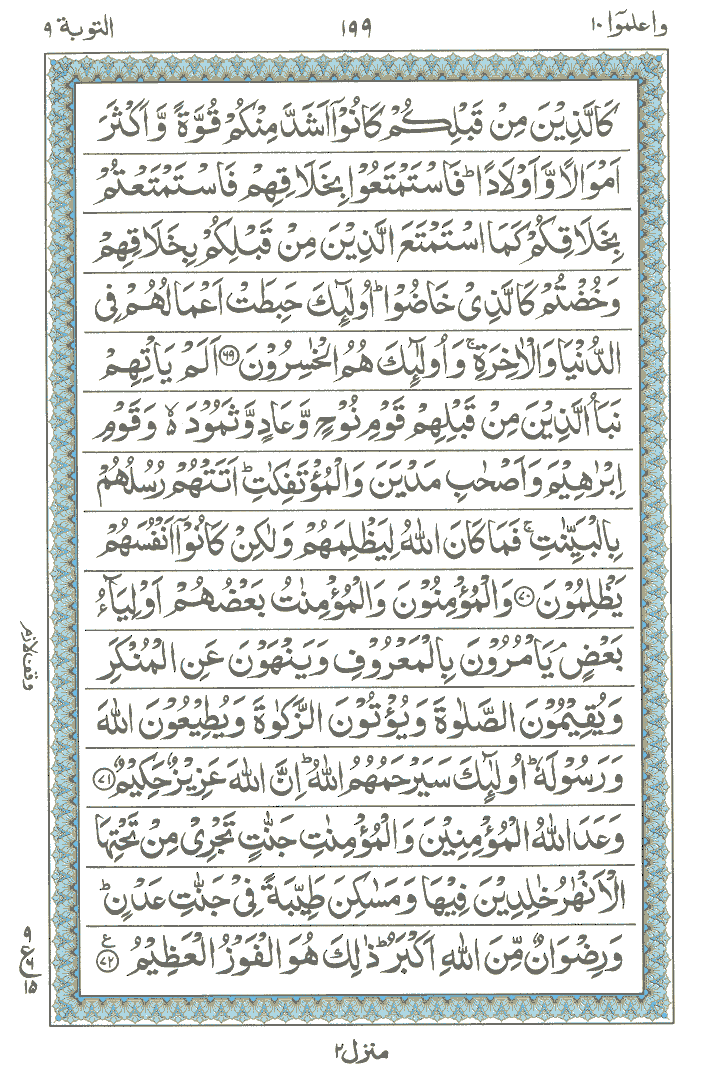 واعلموٓا ١٠
١٩٩
التوبة ٩
كَالَّذِيْنَ مِنْ قَبْلِكُمْ كَانُوْٓا اَشَدَّ مِنْكُمْ قُوَّةً وَّ اَكْثَرَ
اَمْوَالًا وَّ اَوْلَادًا ؕ فَاسْتَمْتَعُوْا بِخَلَاقِهِمْ فَاسْتَمْتَعْتُمْ
بِخَلَاقِكُمْ كَمَا اسْتَمْتَعَ الَّذِيْنَ مِنْ قَبْلِكُمْ بِخَلَاقِهِمْ
وَخُضْتُمْ كَالَّذِىْ خَاضُوْا ؕ اُولٰٓئِكَ حَبِطَتْ اَعْمَالُهُمْ فِى
الدُّنْيَا وَالْاٰخِرَةِ ۚ وَاُولٰٓئِكَ هُمُ الْخٰسِرُوْنَ ﴿٦٩﴾ اَلَمْ يَاْتِهِمْ
نَبَاُ الَّذِيْنَ مِنْ قَبْلِهِمْ قَوْمِ نُوْحٍ وَّعَادٍ وَّثَمُوْدَ ۙ۬ وَقَوْمِ
اِبْرٰهِيْمَ وَاَصْحٰبِ مَدْيَنَ وَالْمُؤْتَفِكٰتِ ؕ اَتَتْهُمْ رُسُلُهُمْ
بِالْبَيِّنٰتِ ۚ فَمَا كَانَ اللّٰهُ لِيَظْلِمَهُمْ وَلٰكِنْ كَانُوْٓا اَنْفُسَهُمْ
يَظْلِمُوْنَ ﴿٧٠﴾ وَالْمُؤْمِنُوْنَ وَالْمُؤْمِنٰتُ بَعْضُهُمْ اَوْلِيَآءُ
بَعْضٍ ۘ يَاْمُرُوْنَ بِالْمَعْرُوْفِ وَيَنْهَوْنَ عَنِ الْمُنْكَرِ
وَيُقِيْمُوْنَ الصَّلٰوةَ وَيُؤْتُوْنَ الزَّكٰوةَ وَيُطِيْعُوْنَ اللّٰهَ
وَرَسُوْلَهٗ ؕ اُولٰٓئِكَ سَيَرْحَمُهُمُ اللّٰهُ ؕ اِنَّ اللّٰهَ عَزِيْزٌ حَكِيْمٌ ﴿٧١﴾
وَعَدَ اللّٰهُ الْمُؤْمِنِيْنَ وَالْمُؤْمِنٰتِ جَنّٰتٍ تَجْرِىْ مِنْ تَحْتِهَا
الْاَنْهٰرُ خٰلِدِيْنَ فِيْهَا وَمَسٰكِنَ طَيِّبَةً فِىْ جَنّٰتِ عَدْنٍ ؕ
وَرِضْوَانٌ مِّنَ اللّٰهِ اَكْبَرُ ؕ ذٰلِكَ هُوَ الْفَوْزُ الْعَظِيْمُ ﴿٧٢﴾ ع
وقف لازم
٩
ع ٦
١٥
منزل ٢